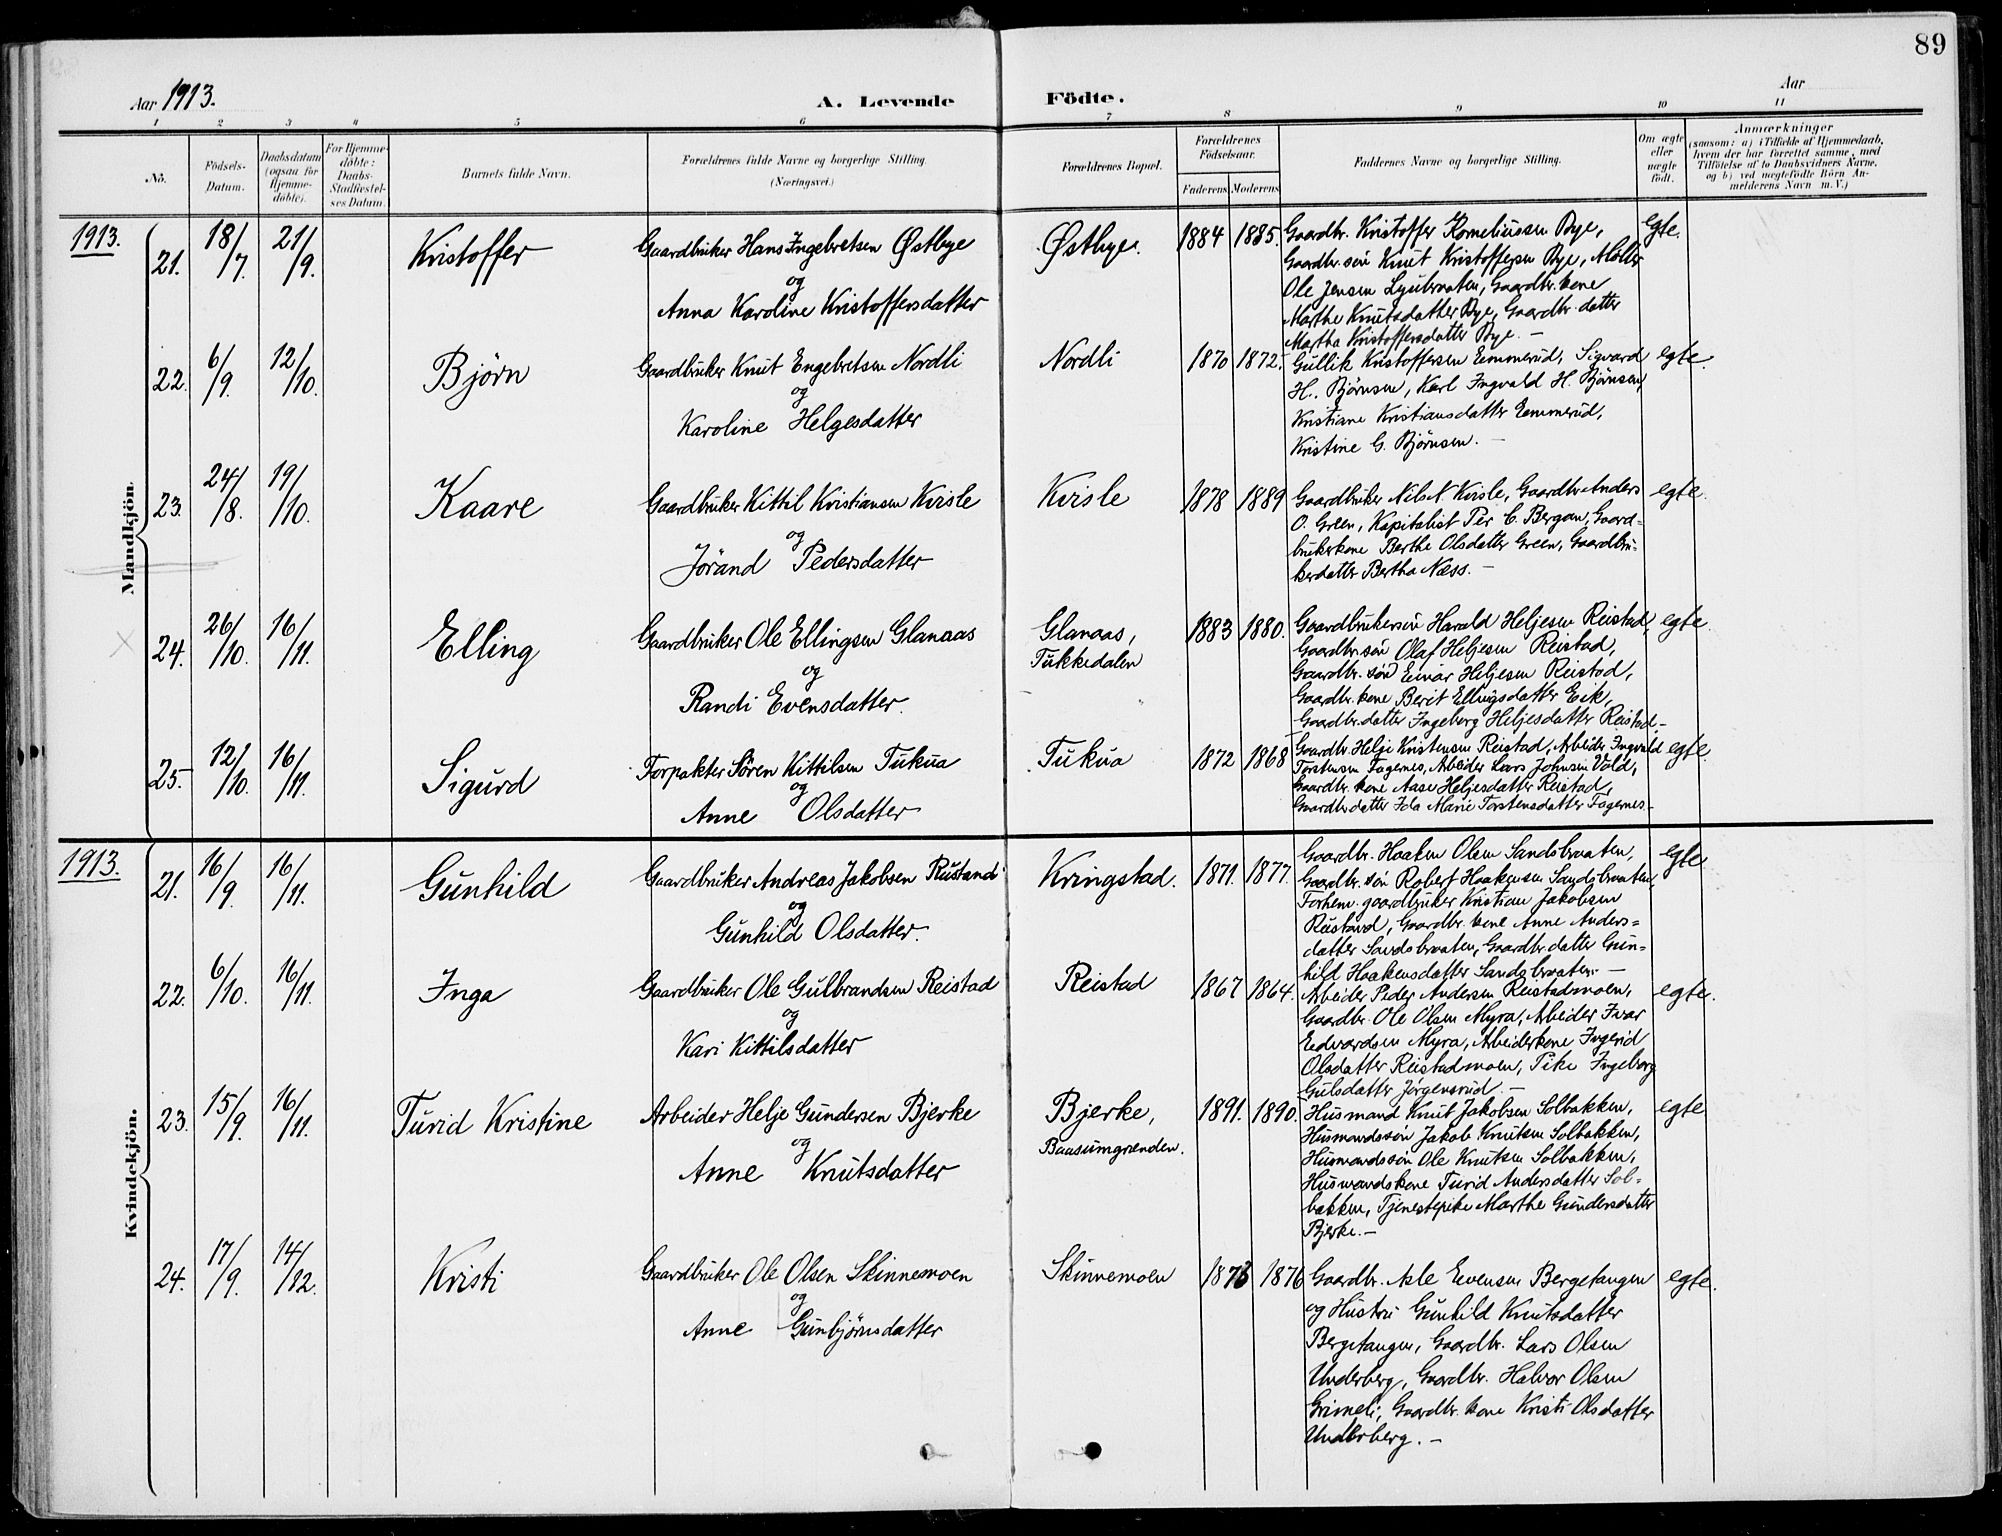 89
Aar 1913.
A. Levende Födte.
Aar
1 2 3 4 5 6 7 8 9 10 11
No.
Födsels-Datum.
Daabsdatum (ogsaa for Hjemme-döbte).
For Hjemme-döbte: Daabs-Stadfæstel-ses Datum.
Barnets fulde Navn.
Forældrenes fulde Navne og borgerlige Stilling.
(Næringsvei.)
Forældrenes Bopæl.
Forældrenes Födselsaar.
Faderens Moderens
Faddernes Navne og borgerlige Stilling.
Om ægte eller uægte födt.
Anmærkninger
(saasom: a) i Tilfælde af Hjemmedaab,
hvem der har forrettet samme, med
Tilföielse af to Daabsvidners Navne,
og b) ved uægtefödte Börn An-
melderens Navn m. V.)
Mandkjön.
1913.
21. 18/7. 21/9. Kristoffer
Gaardbruker Hans Ingebretsen Østbye
og
Anna Karoline Kristoffersdatter
Østbye. 1884 1885.
Gaardbr. Kristoffer Korneliussen Bye,
Gaardbr. søn Knut Kristoffersen Bye, Møller
Ole Jensen Lyubraaten, Gaardbr. kone
Marthe Knutsdatter Bye, Gaardbr. datter
Martha Kristoffersdatter Bye. —
egte.
22. 6/9. 12/10. Bjørn
Gaardbruker Knut Engebretsen Nordli
og
Karoline Helgesdatter
Nordli 1870 1872.
Gullik Kristoffersen Emmerud, Sigvard
H. Bjørnsen, Karl Ingvald H. Bjørnsen,
Kristiane Kristiansdatter Emmerud,
Kristine G. Bjørnsen. —
egte.
23. 24/8. 19/10. Kaare
Gaardbruker Kittil Kristiansen Kvisle
og
Jørand Pedersdatter
Kvisle 1878 1889
Gaardbruker Nils N. Kvisle, Gaardbr. Anders
O. Green, Kapitalist Per C. Bergan, Gaard-
brukerkone Berthe Olsdatter Green, Gaardbru-
kerdatter Bertha Næss. —
egte.
24. 26/10. 16/11. Elling
Gaardbruker Ole Ellingsen Glanaas
og
Randi Evensdatter.
Glanaas,
Tukkedalen
1883 1880.
Gaardbrukersøn Harald Heljesen Reistad,
Gaardbr. søn Olaf Heljesen Reistad,
Gaardbr. søn Einar Heljesen Reistad,
Gaardbr. kone Berit Ellingsdatter Eik,
Gaardbr. datter Ingeborg Heljesdatter Reistad. —
egte.
25. 12/10. 16/11. Sigurd
Forpakter Søren Kittilsen Tukua
og
Anne Olsdatter
Tukua 1872 1868
Gaardbr. Helje Kristensen Reistad, Arbeider Ingvald
Torstensen Fagernes, Arbeider Lars Johnsen Vold,
Gaardbr. kone Aase Heljesdatter Reistad,
Gaardbr. datter Ida Marie Torstensdatter Fagernes —
egte.
Kvindekjön.
1913.
21. 16/9. 16/11. Gunhild
Gaardbruker Andreas Jakobsen Rustand
og
Gunhild Olsdatter.
Kringstad. 1871. 1877.
Gaardbr. Haaken Olsen Sandsbraaten,
Gaardbr. søn Robert Haakensen Sandsbraaten,
Forhen. gaardbruker Kristian Jakobsen
Rustand, Gaardbr. kone Anne Anders-
datter Sandsbraaten, Gaardbr. datter Gun-
hild Haakensdatter Sandsbraaten. —
egte
22. 6/10. 16/11. Inga
Gaardbruker Ole Gulbrandsen Reistad
og
Kari Kittilsdatter
Reistad 1867 1864.
Arbeider Peder Andersen Reistadmoen,
Gaardbr. Ole Olsen Myra, Arbeider Ivar
Edvardsen Myra, Arbeiderkone Ingerid
Olsdatter Reistadmoen, Pike Ingeborg
Gulsdatter Jørgensrud. —
egte.
23. 15/9. 16/11. Turid Kristine
Arbeider Helje Gundersen Bjerke
og
Anne Knutsdatter
Bjerke,
Baasumgrænden.
1891. 1890.
Husmand Knut Jakobsen Solbakken,
Husmandssøn Jakob Knutsen Solbakken,
Husmandssøn Ole Knutsen Solbakken,
Husmandskone Turid Andersdatter Sol-
bakken, Tjenestepike Marthe Gundersdatter
Bjerke. —
egte
24. 17/9. 14/12. Kristi
Gaardbruker Ole Olsen Skinnemoen
og
Anne Gunbjørnsdatter
Skinnemoen 1873 1876
Gaardbr. Asle Evensen Bergetangen
og Hustru Gunhild Knutsdatter
Bergetangen, Gaardbr. Lars Olsen
Underberg, Gaardbr. Halvor Olsen
Grimeli, Gaardbr. kone Kristi Olsdatter
Underberg. —
egte.